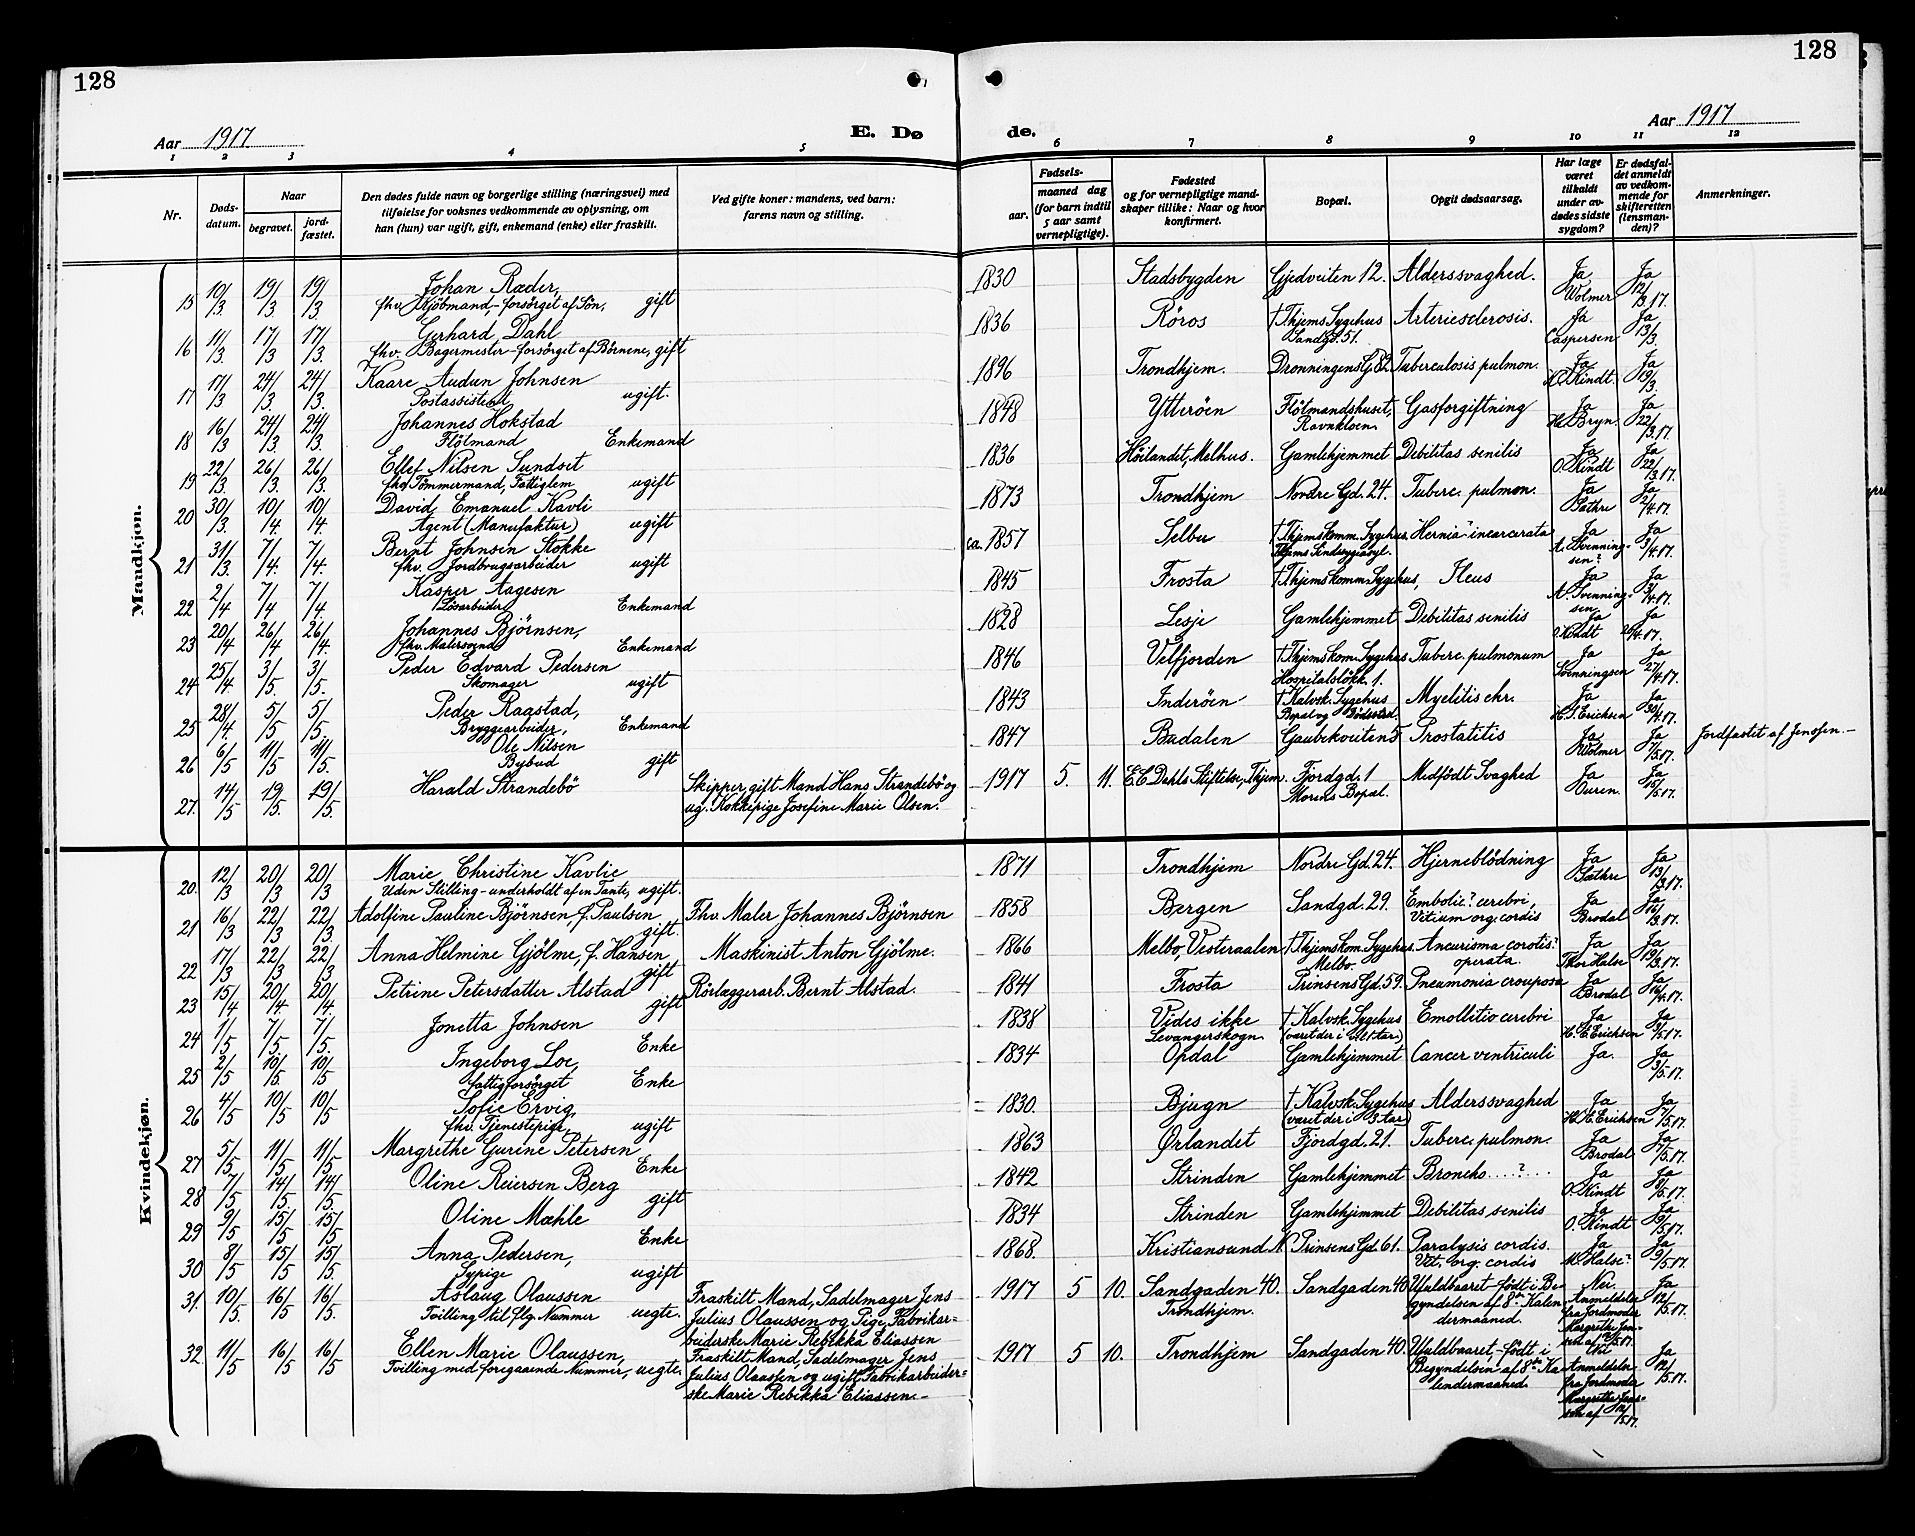 128
128
Aar 1917
E. Dø
de.
Aar 1917
1 2 3 4 5 6 7 8 9 10 11 12
Nr.
Døds-
datum.
Naar
begravet.
jord-
fæstet.
Den dødes fulde navn og borgerlige stilling (næringsvei) med
tilføielse for voksnes vedkommende av oplysning, om
han (hun) var ugift, gift, enkemand (enke) eller fraskilt.
Ved gifte koner: mandens, ved barn:
farens navn og stilling.
Fødsels-
aar.
maaned dag
(for barn indtil
5 aar samt
vernepligtige).
Fødested
og for vernepligtige mand-
skaper tillike: Naar og hvor
konfirmert.
Bopæl.
Opgit dødsaarsag.
Har læge
været
tilkaldt
under av-
dødes sidste
sygdom?
Er dødsfal-
det anmeldt
av vedkom-
mende for
skifteretten
(lensman-
den)?
Anmerkninger.
Mandkjøn.
15 10/3 19/3 19/3 Johan Ræder, 1830 Stadsbygden Gjedveiten 12. Alderssvaghed. Ja Ja
fhv. Kjøbmand,- forsørget af Søn, gift Wolmer 12/3.17.
16 11/3 17/3 17/3 Gerhard Dahl 1836 Röros † Thjems Sygehus Arteriesclerosis. Ja Ja
fhv. Bagermester - forsørget af Börnene, gift Sandgd. 51. Caspersen 13/3.
17 17/3 24/3 24/3 Kaare Audun Johnsen 1896 Trondhjem. Dronningens G. 82 Tuberculosis pulmon. Ja Ja
Postassistent, ugift. Kindt. 19/3.
18 16/3 24/3 24/3 Johannes Hokstad 1848 Ytterøen Flötmandshuset, Gasforgiftning Ja Ja
Flötmand Enkemand Ravnkloen. H. Bryn. 22/3.17.
19 22/3 26/3 26/3 Ellef Nilsen Sundset 1836 Höilandet, Melhus. Gamlehjemmet Debilitas senilis Ja Ja
fhv. Tømmermand, Fattiglem ugift O. Kindt 22/3.17.
20 30/3 10/4. 10/4. David Emanuel Kavli 1873 Trondhjem Nordre Gd. 24. Tuberc. pulmon. Ja Ja
Agent (Manufaktur) ugift Sæthre 2/4.17.
21 31/3. 7/4. 7/4. Bernt Johnsen Stokke ca. 1857 Selbu † Thjems komm. Sygehus. Hernia incarcerata Ja Ja
fhv. Jordbrugsarbeider ugift Thjems Sindssygeasyl. A. Svenning-sen? 3/4.17.
22 2/4 7/4 7/4 Kasper Aagesen 1845 Frosta † Thjems komm. Sygehus, Ileus Ja Ja
Løsarbeider Enkemand A. Svenning-sen 3/4.17.
23 20/4 26/4 26/4. Johannes Björnsen, 1828 Lesje Gamlehjemmet Debilitas senilis Ja Ja
fhv. Malersvend Enkemand O. Kindt 20/4.17.
24 25/4. 3/5. 3/5. Peder Edvard Pedersen 1846 Velfjorden † Thjems kom. Sygehus Tuberc. pulmonum Ja Ja
Skomager ugift Hospitalsløkk. 1. Svenningsen 27/4.17.
25 28/4. 5/5 5/5. Peder Raastad, 1843 Inderøen † Kalvsk. Sygehus Myelitis chr. Ja Ja
Bryggearbeider, Enkemand Bopæl og Dødssted. H. S. Erichsen 30/4.17.
26 6/5 11/5 11/5. Ole Nilsen 1847 Budalen Gaubekveiten 5 Prostatitis Ja Ja Jordfæstet af Jensen.-
Bybud gift Wolmer 7/5.17.
27. 14/5 19/5. 19/5. Harald Strandebö Skipper, gift Mand Hans Strandebö og 1917 5. 11. E. C. Dahls Stiftelse, Thjem. Fjordgd. 1 Medfödt Svaghed Ja Ja
ug. Kokkepige Josefine Marie Olsen. Morens Bopæl. Ouren. 15/5.17.
Kvindekjøn.
20. 12/3 20/3 20/3 Marie Christine Kavlie 1871 Trondhjem Nordre Gd. 24. Hjerneblödning Ja Ja
Uden Stilling - underholdt af en Tante, ugift. Sæthre 13/3.17.
21 16/3 22/3 22/3 Adolfine Pauline Björnsen, f. Paulsen Fhv. Maler Johannes Björnsen 1858 Bergen Sandgd. 29. Embolie? cerebri, Ja Ja
gift. Vitium org. cordis Brodal 16/3.17.
22 17/3 22/3 22/3 Anna Helmine Gjölme, f. Hansen Maskinist Anton Gjölme. 1866 Melbo, Vesteraalen † Thjems kom. Sygehus. Aneurisma carotis? Ja Ja
gift Melbo. operata. Thor Halse 19/3.17.
23 15/4 20/4. 20/4. Petrine Petersdatter Alstad Rörlæggerarb. Bernt Alstad. 1841 Frosta Prinsens Gd. 59. Pneumonia crouposa Ja Ja
gift Brodal 16/4.17.
24 1/5 7/5 7/5. Jonetta Johnsen 1838 Vides ikke † Kalvsk. Sygehus Emollitio cerebri Ja Ja
Enke Levangerskogn. H. S. Erichsen 3/5.17.
25 2/5 10/5. 10/5 Ingeborg Loe, 1834 Opdal Gamlehjemmet Cancer ventriculi Ja. Ja
fattigforsørget Enke 3/5.17.
26 4/5 10/5 10/5 Sofie Ervig, 1830. Bjugn † Kalvsk. Sygehus Alderssvaghed Ja Ja
fhv. Tjenestepige, ugift (været der i 3 Aar) H. S. Erichsen 7/5.17.
27 5/5 11/5 11/5. Margrethe Gurine Petersen 1863 Ørlandet Fjordgd. 21. Tuberc. pulmon. Ja Ja
Enke Brodal 7/5.17.
28 7/5 14/5. 14/5. Oline Reiersen Berg 1842 Strinden Gamlehjemmet Broncho....?... Ja Ja
gift O. Kindt 8/5.17.
29 9/5 15/5 15/5 Oline Mæhle 1834 Strinden Gamlehjemmet Debilitas senilis Ja Ja
Enke O. Kindt 9/5.17.
30 8/5 15/5 15/5. Anna Pedersen, 1868. Kristiansund N Prinsens Gd. 61. Paralysis cordis. Ja Ja
Sypige ugift Vit. org. cordis M. Halse? 9/5.17.
31. 10/5. 16/5 16/5. Aslaug Olaussen Fraskilt Mand, Sadelmager Jens 1917 5 10. Sandgaden 40. Sandgaden 40 Uuldbaaret - födt i Be- Nei Ja
Tvilling til flg. Nummer uegte. Julius Olaussen og Pige, Fabrikar- Trondhjem. gyndelsen af 8de Kalen- Anmeldelse 12/5.17.
beiderske Marie Rebekka Eliassen dermaaned. fra Jordmoder
32 11/5 16/5 16/5 Ellen Marie Olaussen, Fraskilt Mand, Sadelmager Jens 1917 5 10. Trondhjem Sandgaden 40. Uuldbaaret, födt i Nei Ja
Tvilling med foregaaende Nummer, uegte. Julius Olaussen og ugift Fabrikarbeider- Begyndelsen af 8de Ka- Anmeldelse 12/5.17.
ske Marie Rebekka Eliassen.- lendermaaned. fra Jordmoder